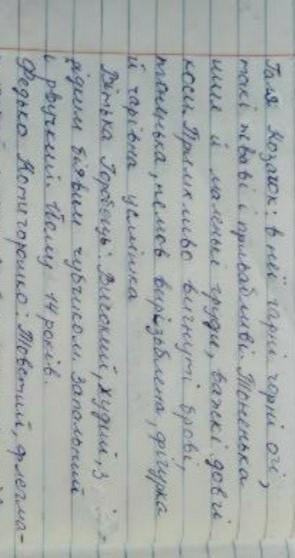 Галя Козачок: в неї гарні чорні очі,
такі жваві і привабливі. Тоненька
шия й маленькі груди, важкі довгі
коси. Примхливо вигнуті брови,
тоненька, немов вирізьблена, фігурка
й чарівна усмішка
Вітька Горобець: Високий, худий, з
рудим чубчиком. Запальний
і рвучкий. Йому 14 років.
Федько Котигорошко. Товстий, флегма-